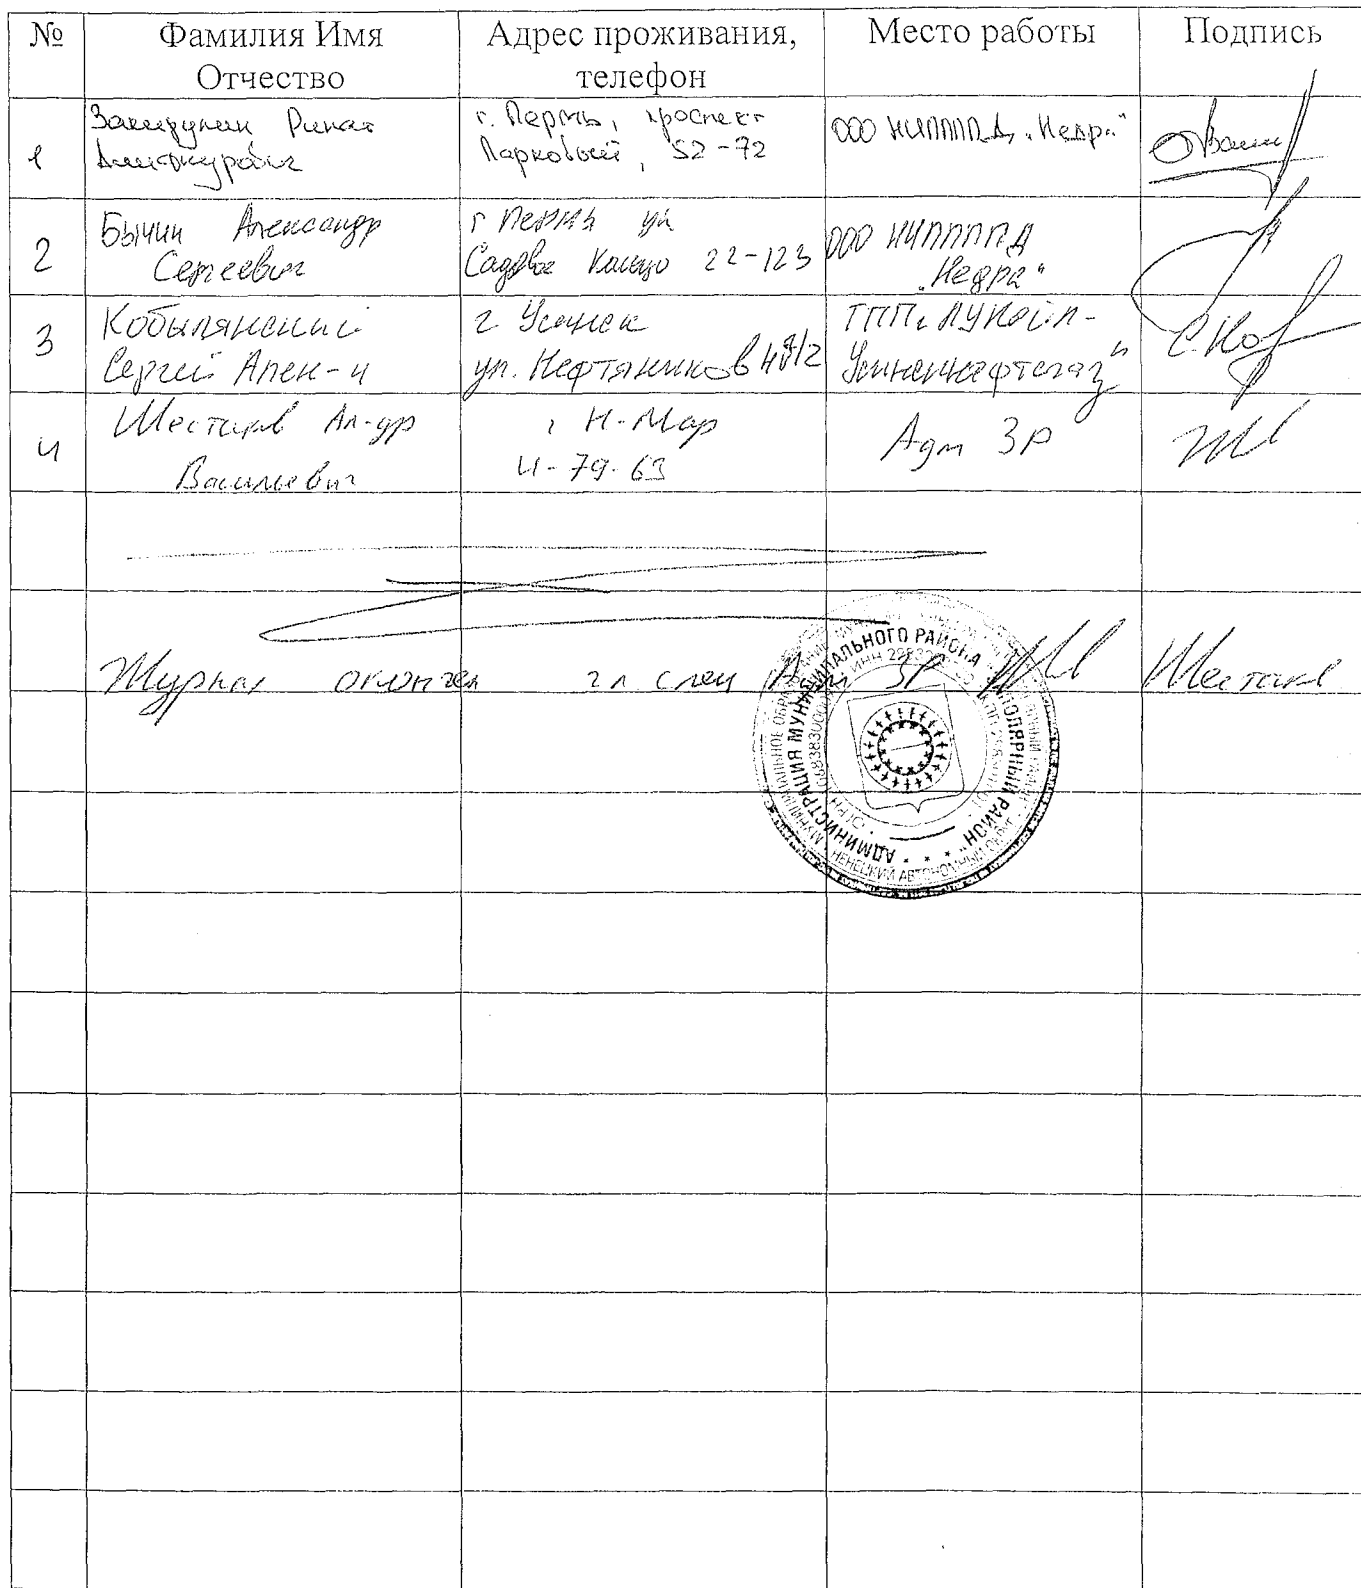 № Фамилия Имя Отчество Адрес проживания, телефон Место работы Подпись
1 Ринат г. Пермь, проспект Парковый, 52-72 ООО НИППППД „Недра“
2 Бычин Александр Сергеевич г Пермь ул Садовое Кольцо 22-123 ООО НИППППД „Недра“
3 Кобылянский Сергей Алек-ч г Усинск ул. Нефтяников ТПП „ЛУКойл-Усинскнефтегаз“ С.Коб
4 Шестаков Ал-др Васильевич г Н-Мар 4-79-63 Адм ЗР
Журнал окончен гл спец Адм ЗР Шестаков
АДМИНИСТРАЦИЯ МУНИЦИПАЛЬНОГО РАЙОНА "ЗАПОЛЯРНЫЙ РАЙОН"
НЕНЕЦКИЙ АВТОНОМНЫЙ ОКРУГ